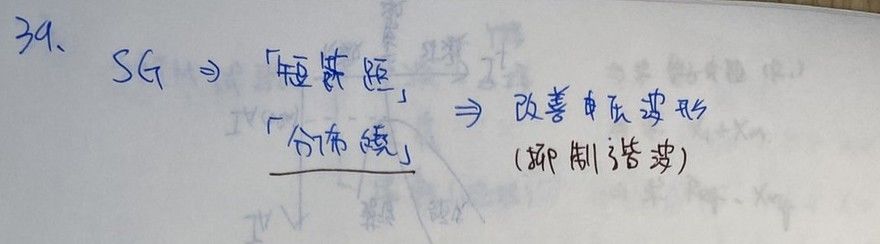 39.
SG ⇒ 「短節距」
「分布繞」 ⇒ 改善电压波形
(抑制谐波)